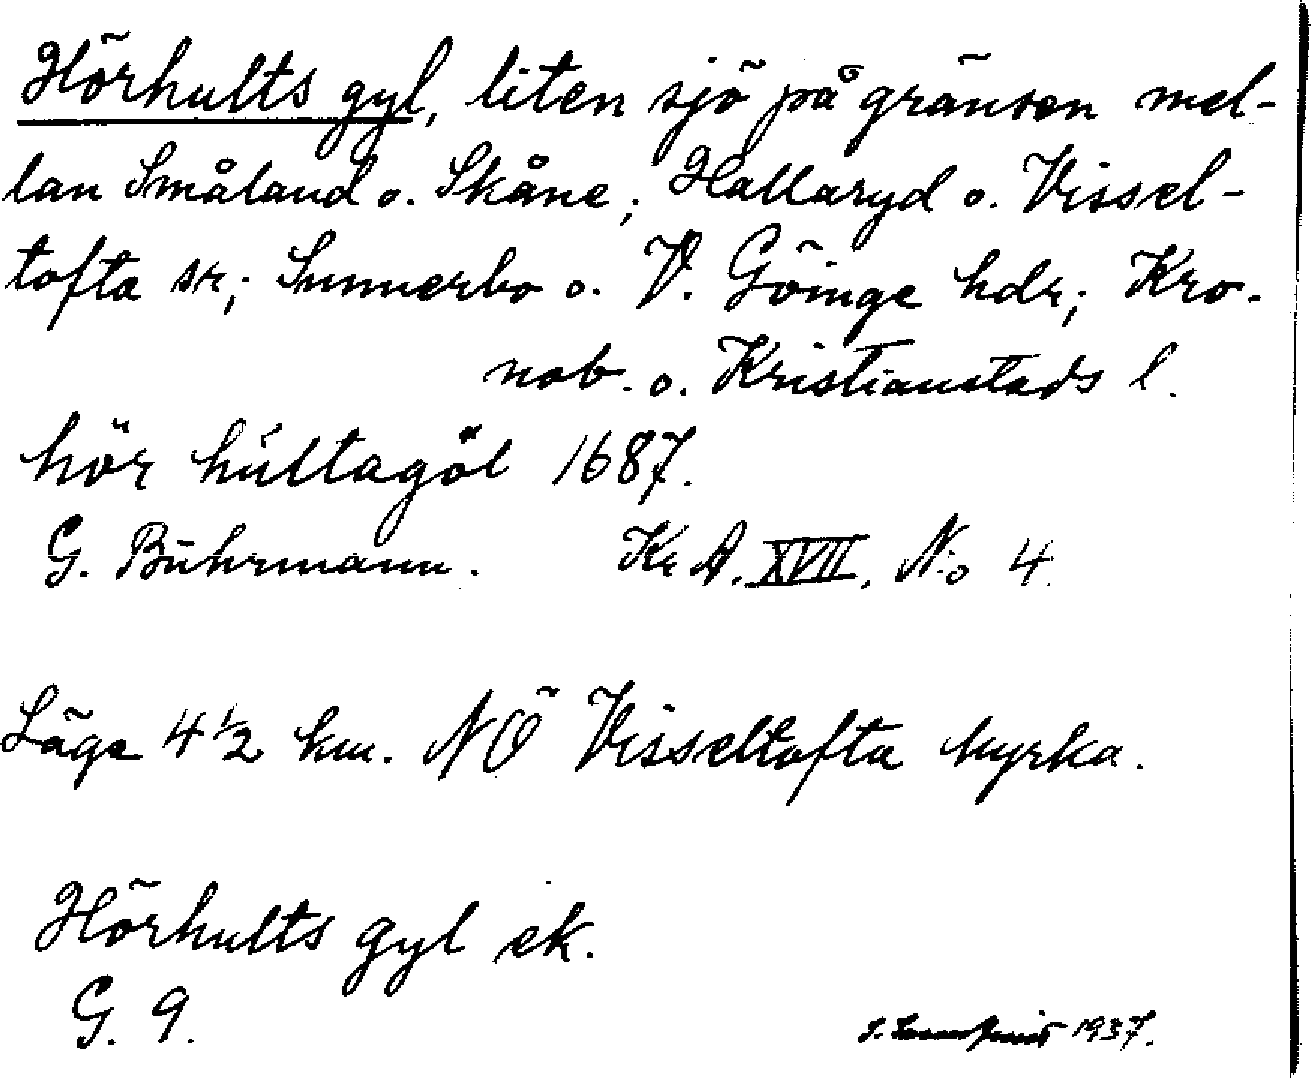 Hörhults gyl, liten sjö på gränsen mel-
lan Småland o. Skåne; Hallaryd o. Vissel-
tofta sr; Sunnerbo o. V. Göinge hdr; Kro-
nob. o. Kristianstads l.
hör húltagöl 1687.
G. Buhrmann. Kr A. XVII, N:o 4.
Läge 4½ km. NÖ Visseltofta kyrka.
Hörhults gyl ek.
G. 9.
1937.